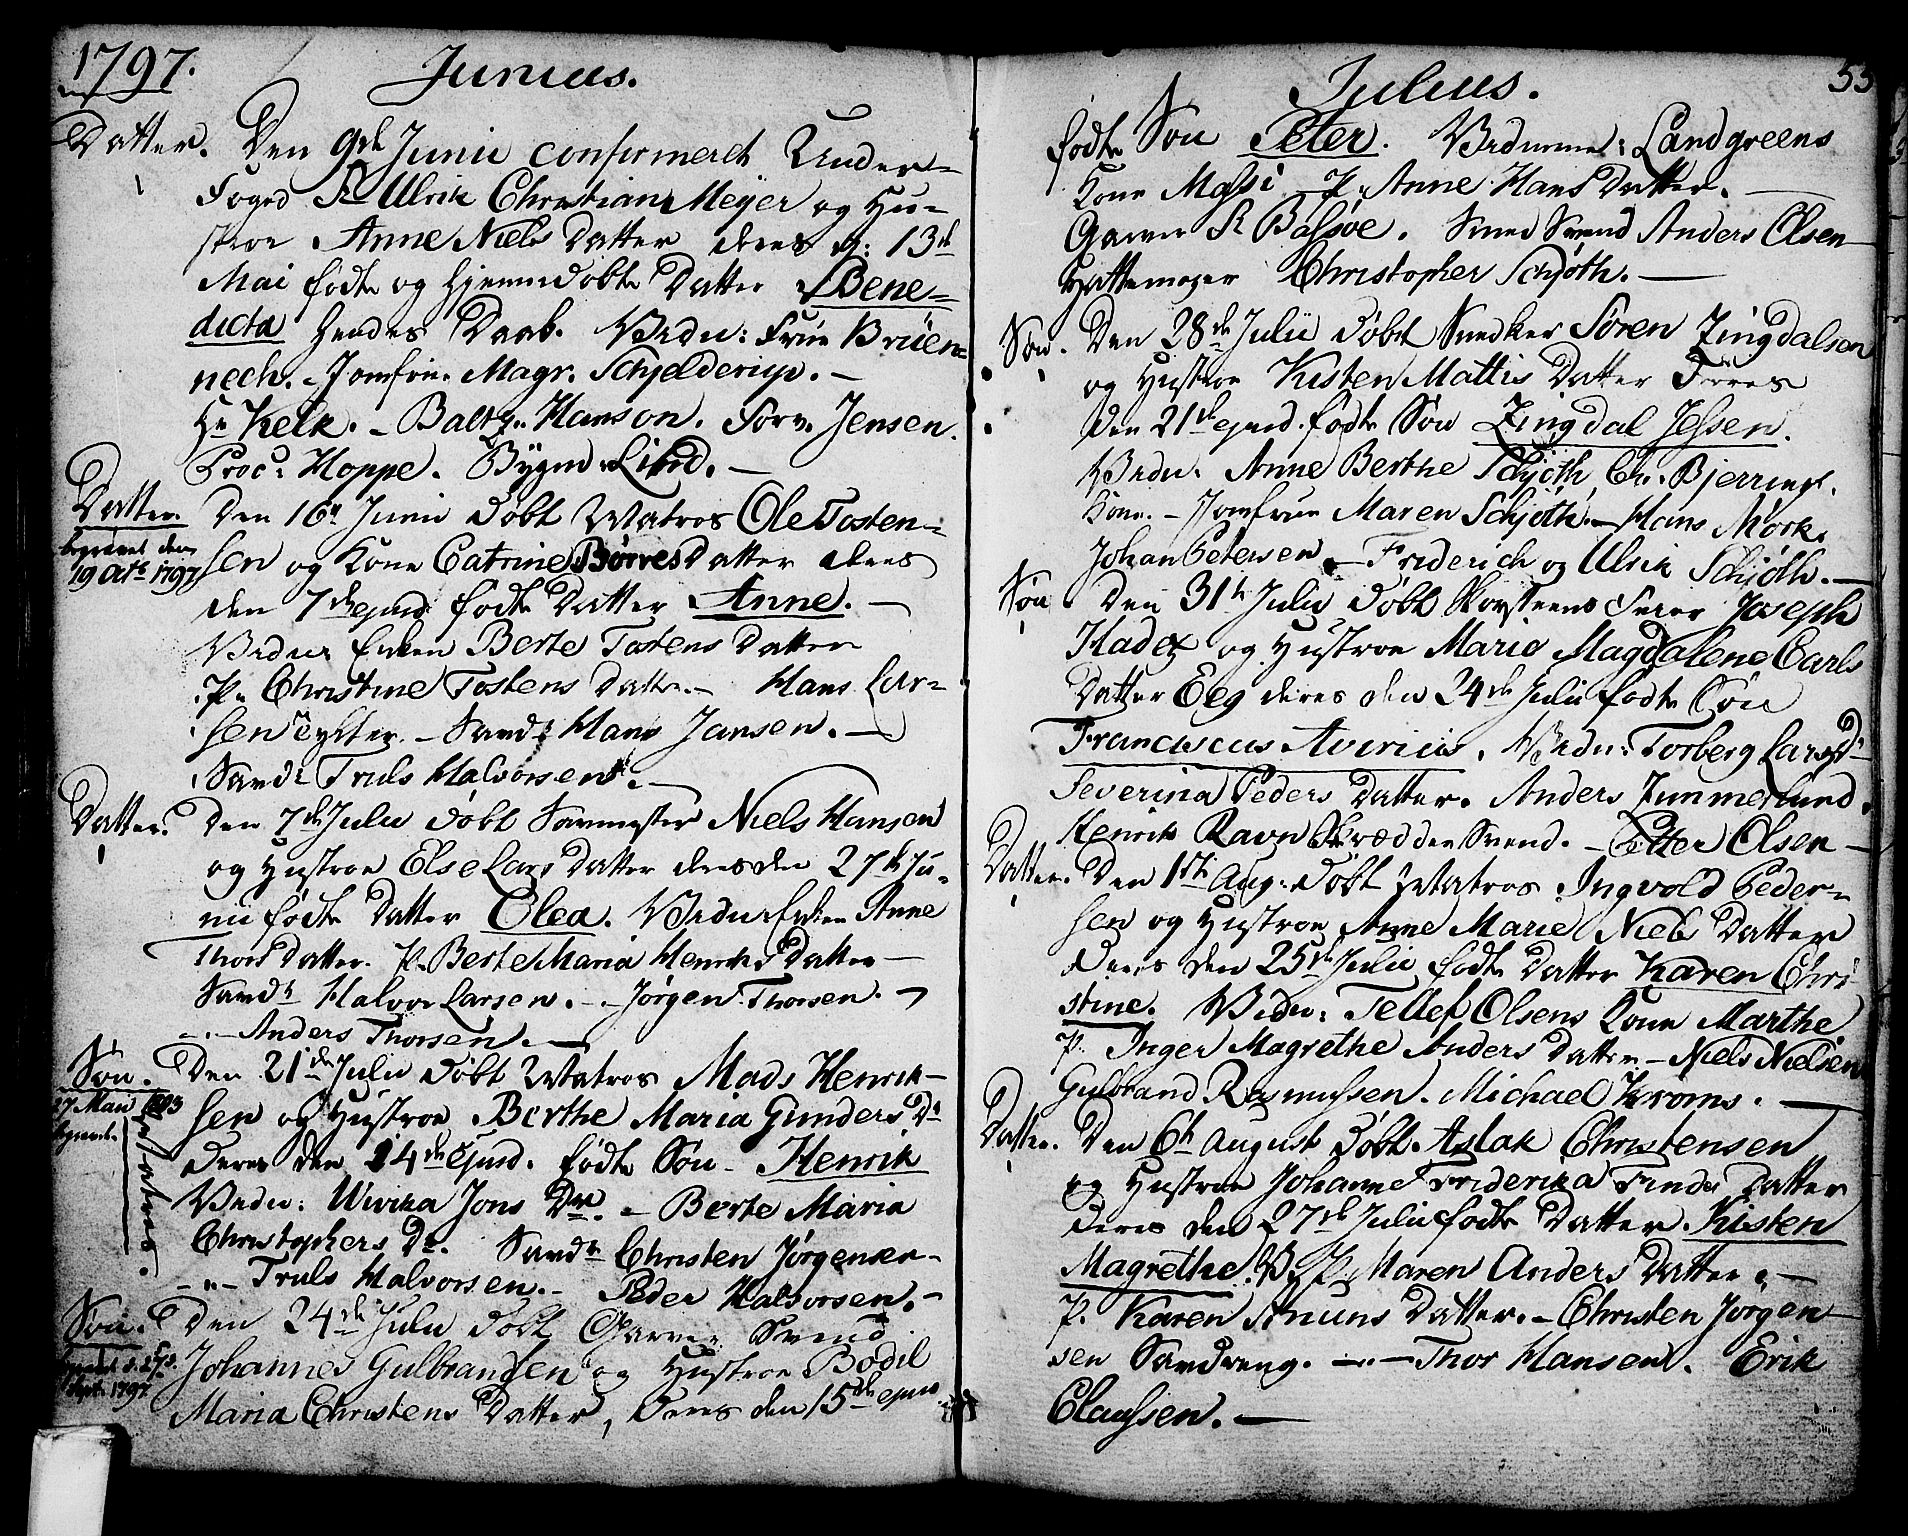 1797. Junius.
Datter. Den 9de Junii confirmeret Under-
Foged Sr Ulrik Christian Meyer og Hu-
stroe Anne Niels Datter deres d: 13de
Mai fødte og hjemmedøbte Datter Bene-
dicta hendes Daab. Vidn: Frue Brüen-
nech. Jomfru Magr. Schjelderup.
Hr Kelk. Baltz. Hanson. Forv. Jensen.
Proc: Hoppe. Bygm. Lind.
Datter. Den 16de Junii døbt Matros Ole Tosten-
begravet den
19 Octr 1797
sen og Kone Catrine Børres Datter deres
den 7de ejusd. fødte Datter Anne.
Vidn: Enken Berte Tostens Datter
P. Christine Tostens Datter. Hans Lar-
sen Sandr Hans Jansen.
Sandr Truls Halvorsen.
Datter. Den 7de Julii døbt Niels Hansen
og Hustroe Else Lars Datter deres den 27de Ju-
nii fødte Datter Olea. Vidn: Enken Anne
Thors Datter. P. Berte Maria Henriks Datter
Sandr Halvor Larsen. Jørgen Thorsen.
Anders Thorsen.
Søn. Den 21de Julii døbt Matros Mads Henrik-
17 Maii 1803
begravet.
sen og Hustroe Berthe Maria Gunders Dr
deres den 14de Ejusd. fødte Søn Henrik
Vidn: Wivika Jons Dr. Berte Maria
Christophers Dr. Sandr Christen Jørgensen
Truls Halvorsen. Peder Halvorsen.
Søn. Den 24de Julii døbt Garver Svend
Sept. 1797
Johannes Gulbrandsen og Hustroe Bodil
Maria Christens Datter, deres den 15de ejusd
Julius. 55
fødte Søn Peter. Vidnerne: Landgreens
Kone Massi P. Anne Hans Datter.
Garver Sr Balsøe. Smed Svend Anders Olsen
Hattemager Christopher Schjøth.
Søn. Den 28de Julii døbt Snedker Søren Zingdalsen
og Hustroe Kisten Mattis Datter deres
den 21de ejusd. fødte Søn Zingdal Jessen.
Vidn: Anne Berthe Schjøth, Chr. Bjerrings
Kone. Jomfrue Maren Schjøth. Hans Mørk.
Johan Petersen. Friderich og Ulrik Schjøth.
Søn. Den 31te Julii døbt Skorsteens Feier Joseph
Kadetz og Hustroe Marie Magdalene Carls
Datter Eeg deres den 24de Julii fødte Søn
Franciscus Avirius. Vidn: Torberg Lars Dr
Severina Peders Datter. Anders Zimmerlund.
Henrik Ravn Skrædder Svend. Petter Olsen
Datter. Den 1ste Aug: døbt Matros Ingvold Peder-
sen og Hustroe Anne Marie Niels Datter
deres den 25de Julii fødte Datter Karen Chri
stine. Vidn: Tellef Olsens Kone Marthe
P. Inger Magrethe Anders Datter Niels Nielsen
Gulbrand Rasmussen. Michael Kroms.
Datter. Den 6te August døbt Aslak Christensen
og Hustroe Johanne Friderika Finds Datter
deres den 27de Julii fødte Datter Kisten
Magrethe. V. P. Maren Anders Datter
P. Karen Knuns Datter. Christen Jørgen
sen Sandreng. Thor Hansen. Erik
Claussen.